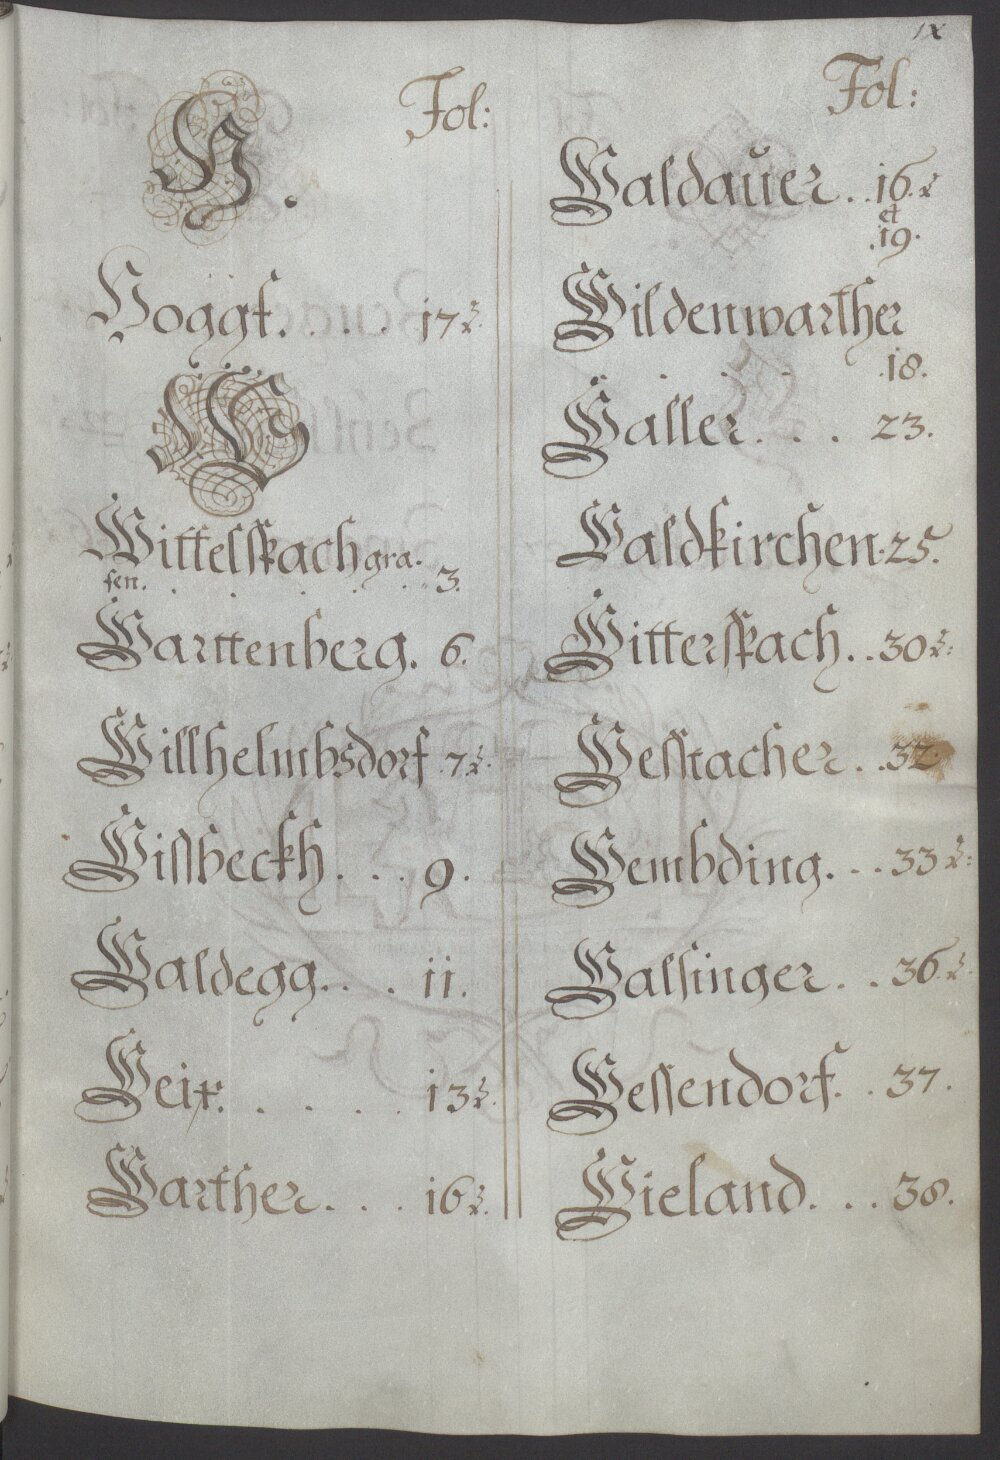 IX
Fol:
V.
Voggt. . . . . 17 2.
W
Wittelspach gra-
fen. . . . . . 3.
Warttenberg. 6.
Willhelmbsdorf .7 2.
Wissbeckh . . . 9.
Waldegg. . . . 11.
Weix. . . . . . 13 2.
Warther. . . . 16 2.
Fol:
Waldaŭer . . 16. 2
et
.19.
Wildenwarther
. . . . .18.
Waller. . . . 23.
Waldkirchen. 25.
Witterspach. . 30 2:
Wesstacher. . .32.
Wembding. . . 33 2:
Walsinger . . 36. 2.
Wessendorf. . 37.
Wieland. . . . 38.